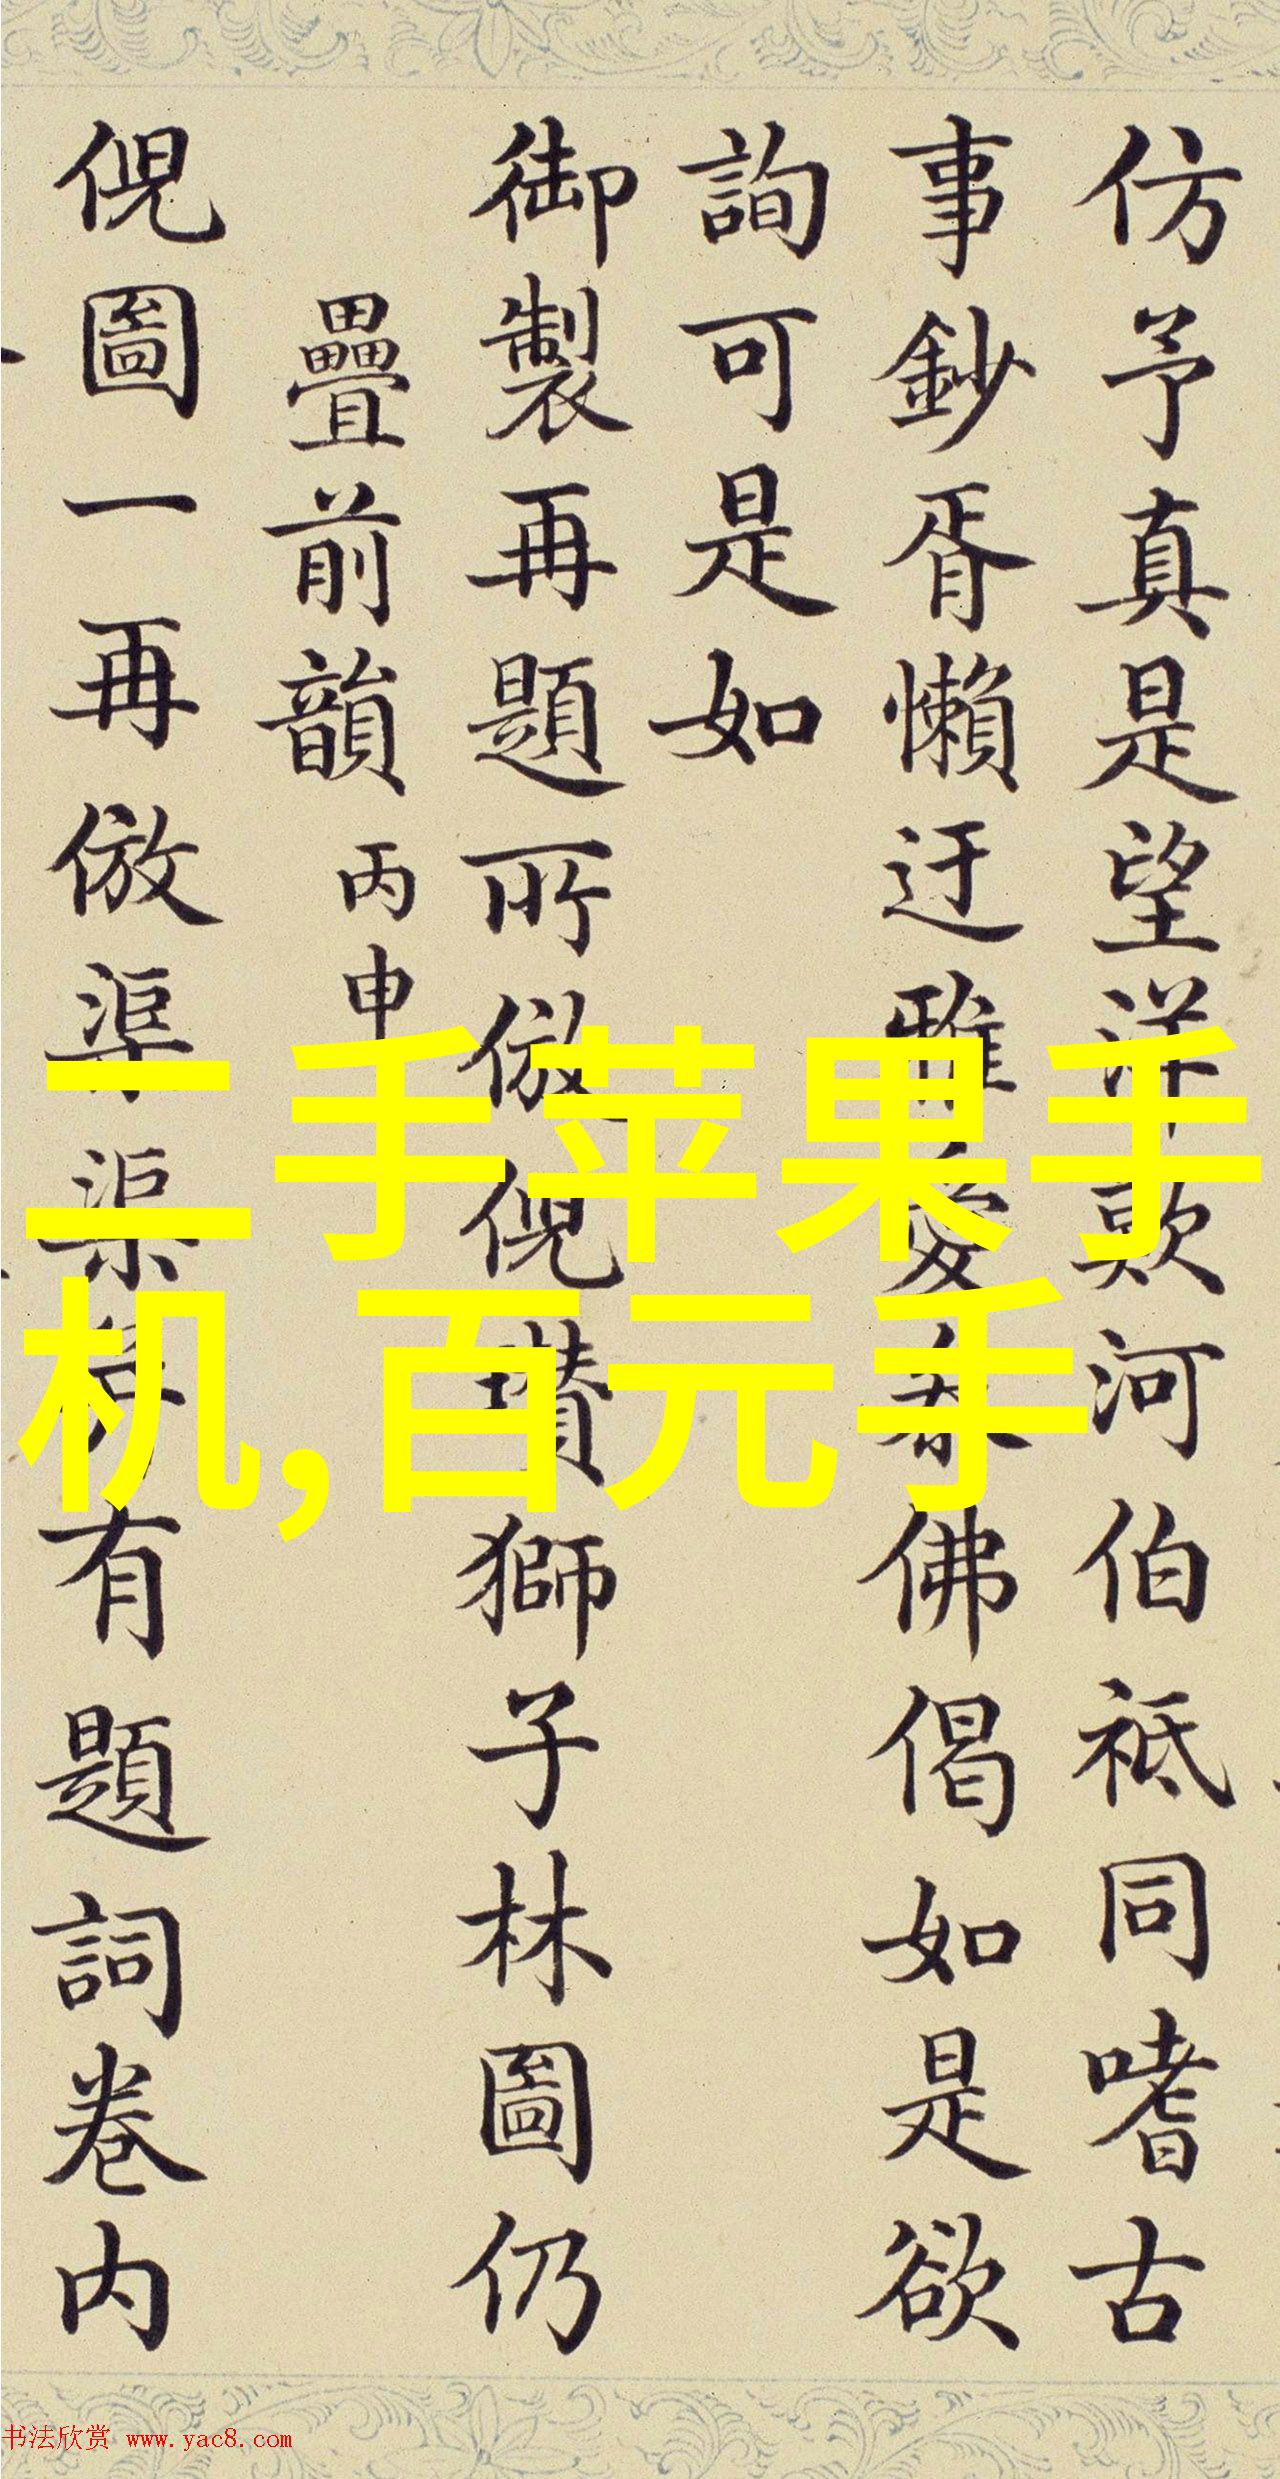 仿予真是望洋欺河伯祇同嗜古
事鈔胥懶迂雅愛 佛偈如是欲
詢可是如
御製再題所倣倪瓚獅子林圖仍
疊前韻丙申
倪圖一再倣渠渠 有題詞卷内
二手苹果手
机,百元手
书法欣赏 www.yac8.com